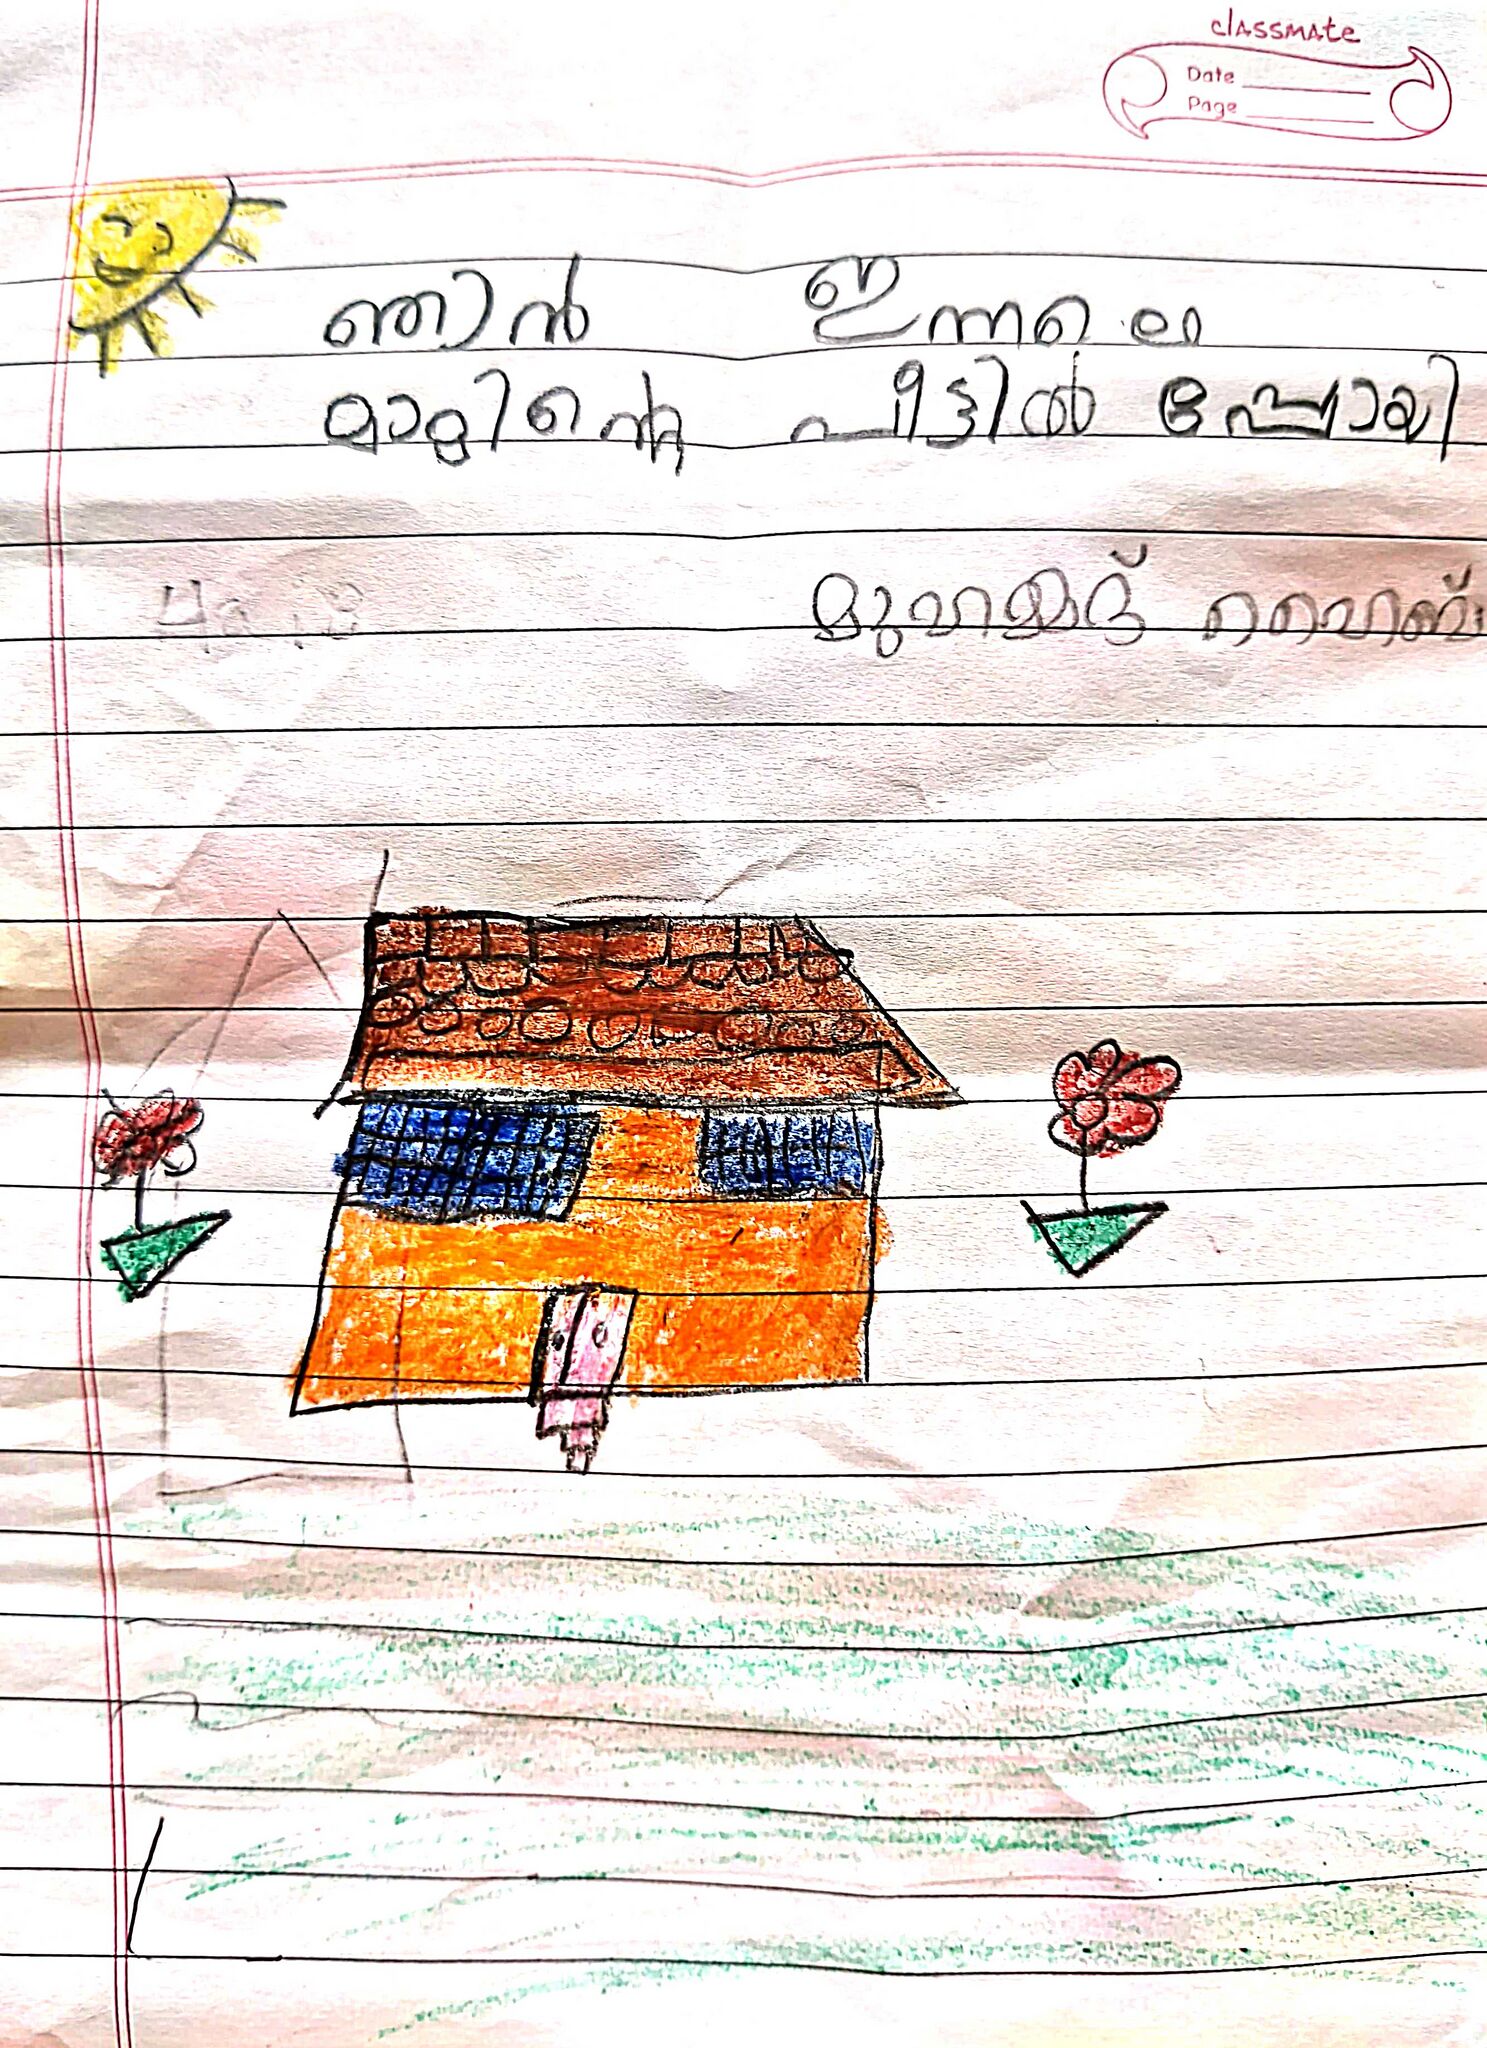 classmate
Date
Page
ഞാൻ ഇന്നലെ
മാമിന്റെ വീട്ടിൽ പോയി
മുഹമ്മദ്